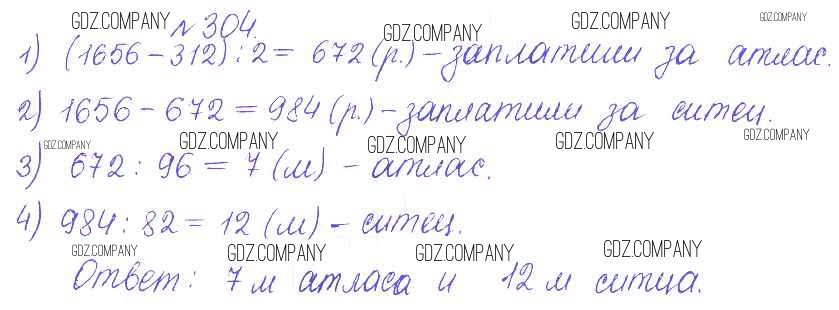 GDZ.COMPANY № 304. GDZ.COMPANY GDZ.COMPANY GDZ.COMPANY
1) (1656 - 312) : 2 = 672 (р.) - заплатили за атлас.
2) 1656 - 672 = 984 (р.) - заплатили за ситец.
GDZ.COMPANY GDZ.COMPANY GDZ.COMPANY GDZ.COMPANY GDZ.COMPANY
3) 672 : 96 = 7 (м) - атлас.
4) 984 : 82 = 12 (м) - ситец.
GDZ.COMPANY GDZ.COMPANY GDZ.COMPANY GDZ.COMPANY
Ответ: 7 м атласа и 12 м ситца.